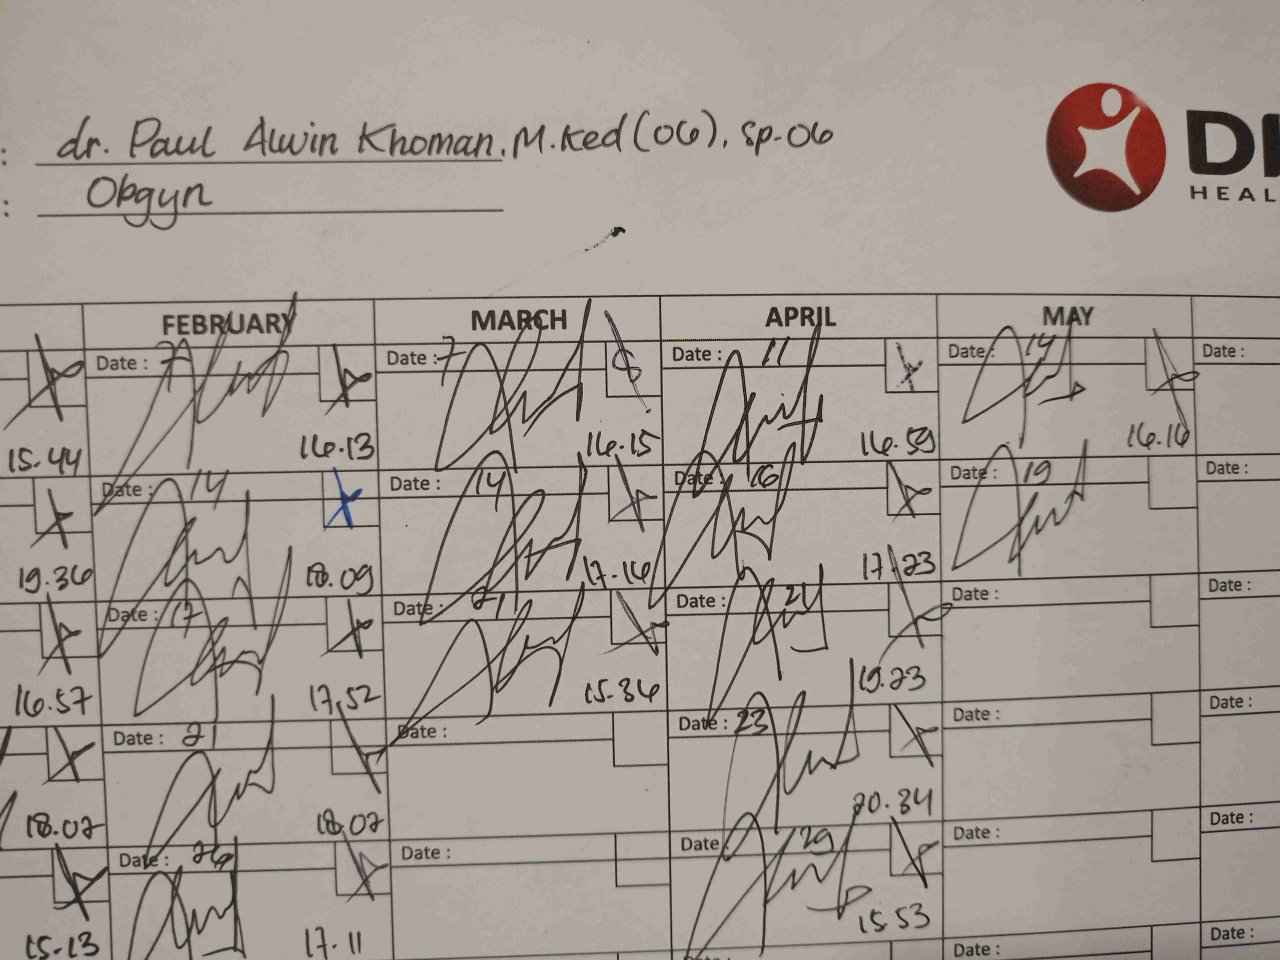 : dr. Paul Alwin Khoman. M.Ked (OG), Sp.OG
: Obgyn
DI
HEAL
FEBRUARY MARCH APRIL MAY
Date : 7 Date : 7 Date : 11 Date : 14 Date :
15.44 16.13 16.15 16.59 16.16
Date : 14 Date : 14 Date : 16 Date : 19 Date :
19.36 18.09 17.16 17.23
Date : 17 Date : 21 Date : 21 Date : Date :
16.57 17.52 15.36 19.23
Date : 21 Date : Date : 23 Date : Date :
18.07 18.07 20.34
Date : 26 Date : Date : 29 Date : Date :
15.13 17.11 15.53
Date : Date :